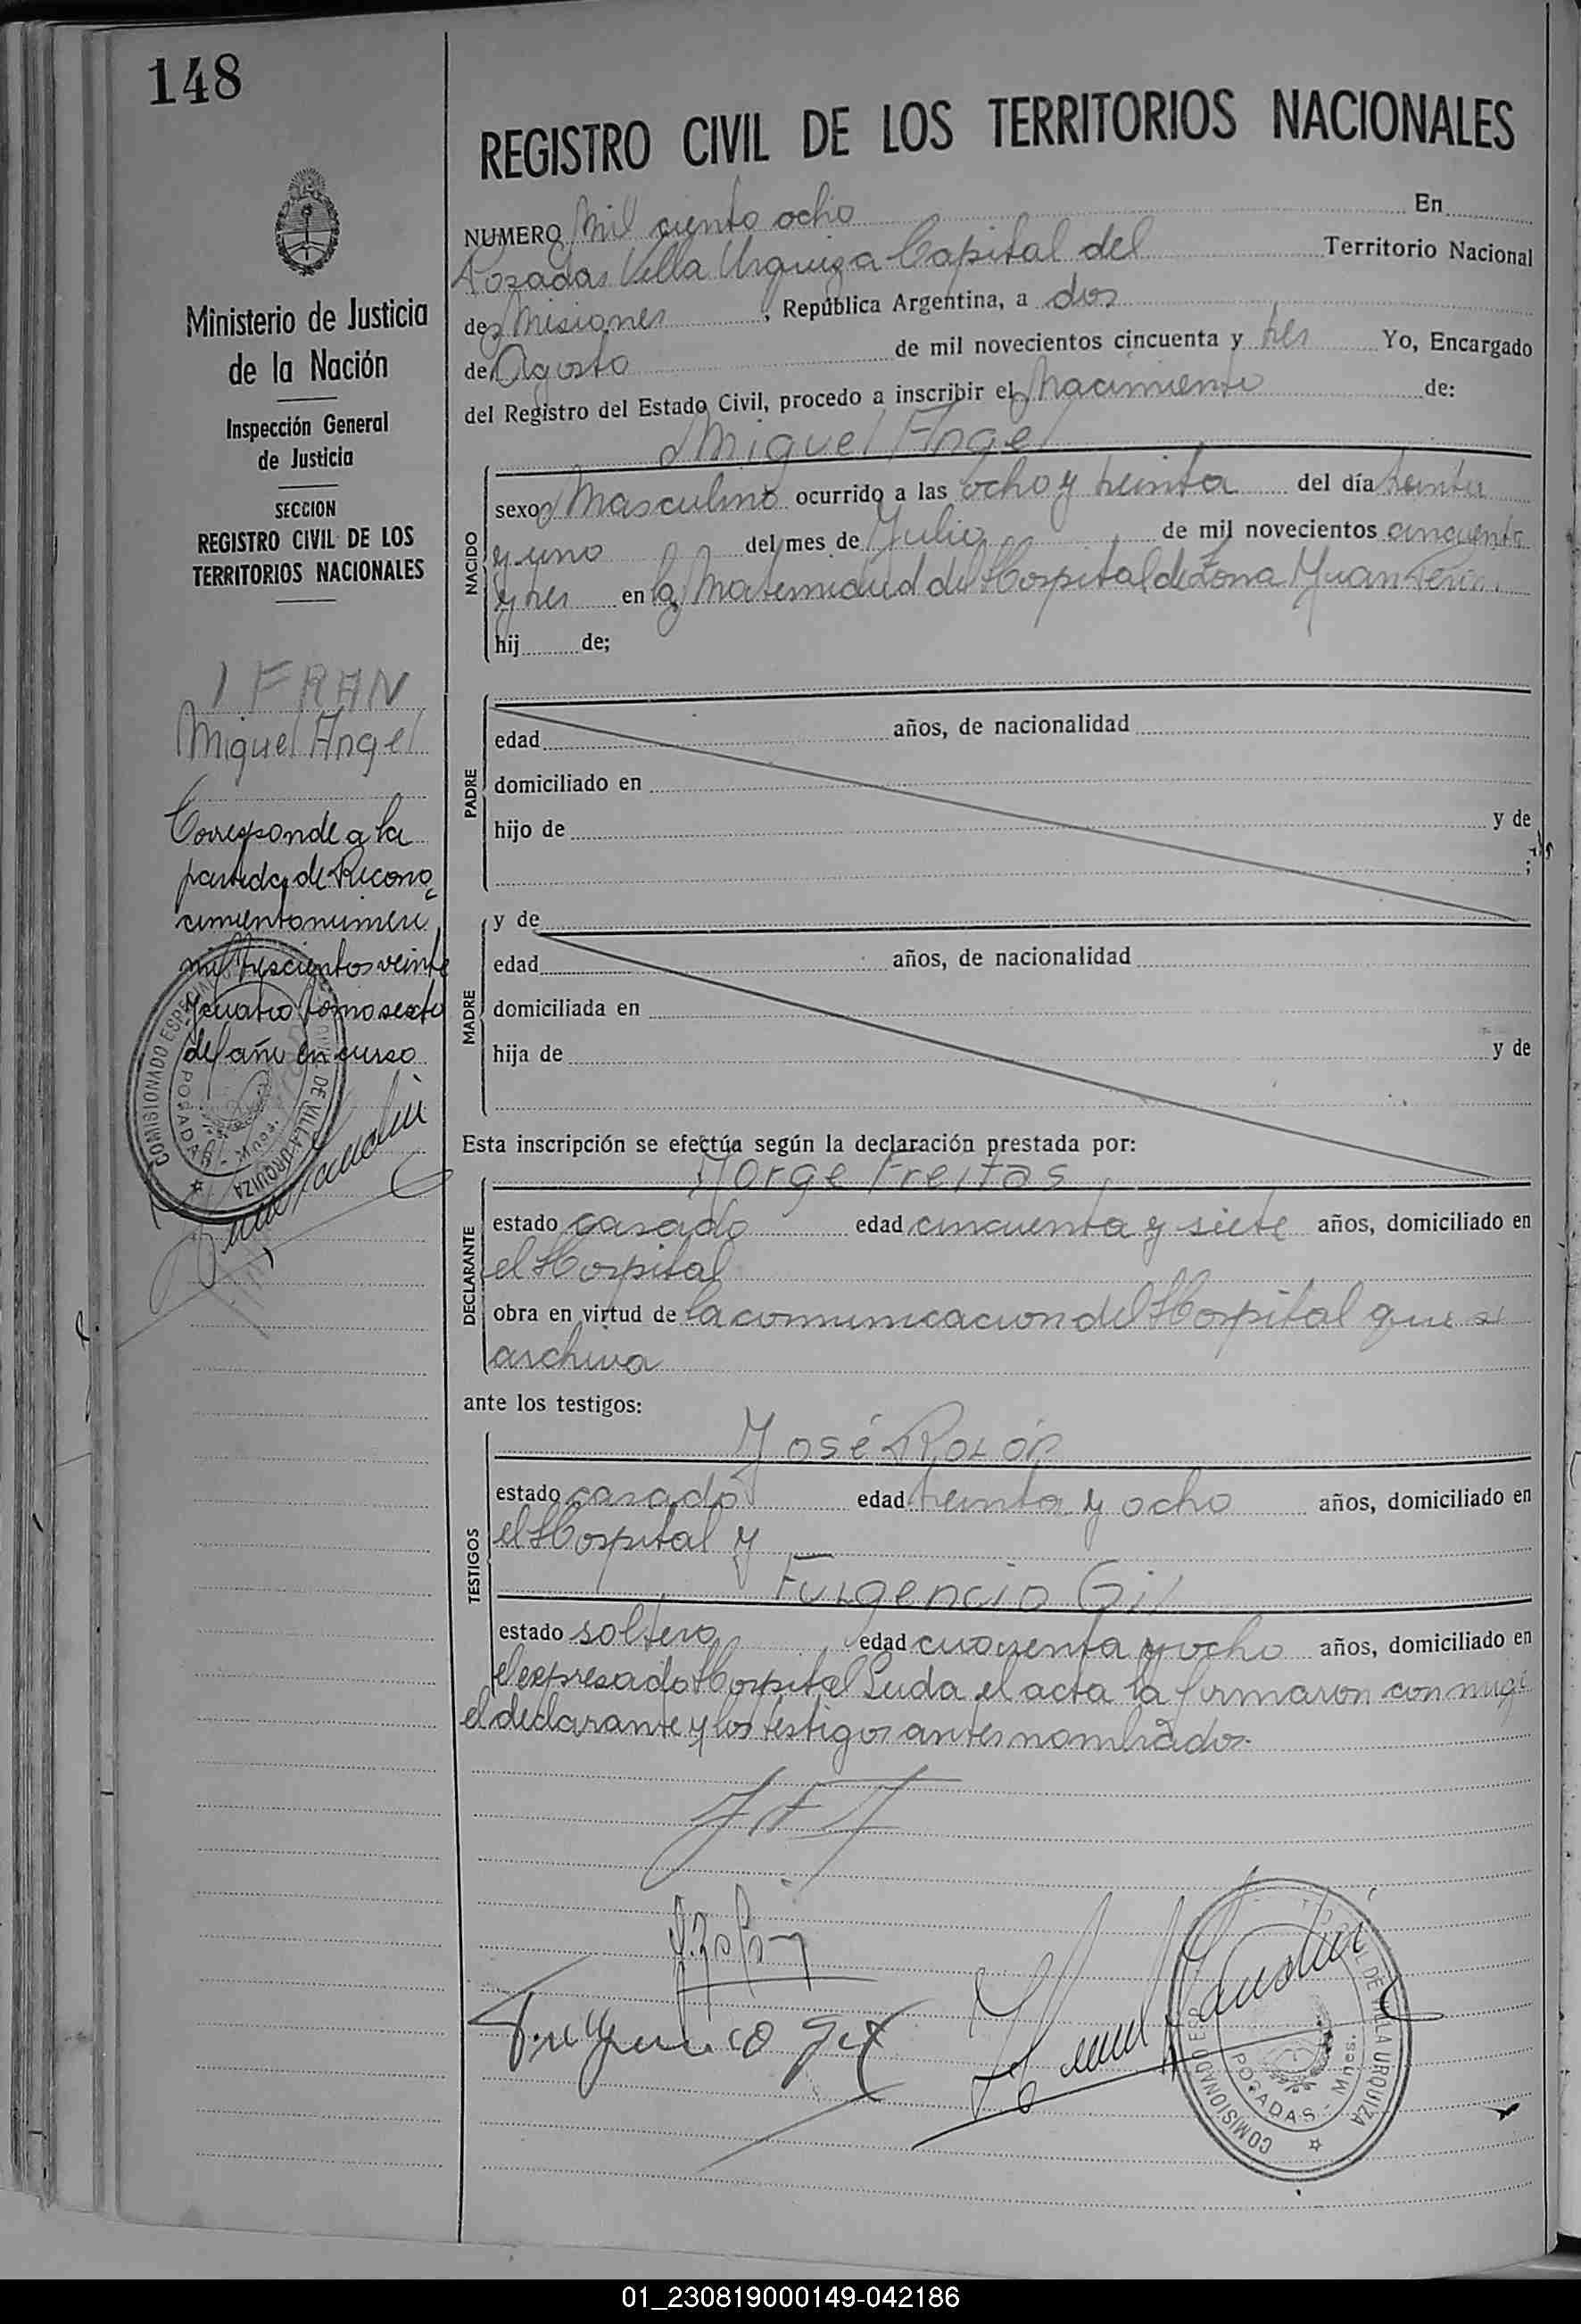 148
REGISTRO CIVIL DE LOS TERRITORIOS NACIONALES
Ministerio de Justicia
de la Nación
Inspección General
de Justicia
SECCION
REGISTRO CIVIL DE LOS
TERRITORIOS NACIONALES
IFRAN
Miguel Angel
Corresponde a la
partida de Recono
cimiento numero
mil trescientos veinte
y cuatro tomo sexto
del año en curso
COMISIONADO ESPECIAL DE VILLA URQUIZA
POSADAS - Mnes.
NUMERO Mil ciento ocho En
Posadas Villa Urquiza Capital del Territorio Nacional
de Misiones, República Argentina, a dos
de Agosto de mil novecientos cincuenta y tres Yo, Encargado
del Registro del Estado Civil, procedo a inscribir el Nacimiento de:
Miguel Angel
NACIDO
sexo Masculino ocurrido a las ocho y treinta del día treinta
y uno del mes de Julio de mil novecientos cincuenta
y tres en la Maternidad del Hospital de Zona Juan Perón
hij de;
PADRE
edad años, de nacionalidad
domiciliado en
hijo de y de
;
MADRE
y de
edad años, de nacionalidad
domiciliada en
hija de y de
Esta inscripción se efectúa según la declaración prestada por:
Jorge Freitas
DECLARANTE
estado casado edad cincuenta y siete años, domiciliado en
el Hospital
obra en virtud de la comunicacion del Hospital que se
archiva
ante los testigos:
José Rolón
TESTIGOS
estado casado edad treinta y ocho años, domiciliado en
el Hospital y
Fulgencio Gil
estado soltero edad cuarenta y ocho años, domiciliado en
el expresado Hospital Leida el acta la firmaron conmigo
el declarante y los testigos antes nombrados.
Fulgencio Gil
COMISIONADO ESP DE VILLA URQUIZA
POSADAS - Mnes.
01_230819000149-042186